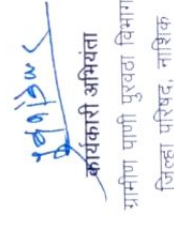 कार्यकारी अभियंता
ग्रामीण पाणी पुरवठा विभाग
जिल्हा परिषद, नाशिक